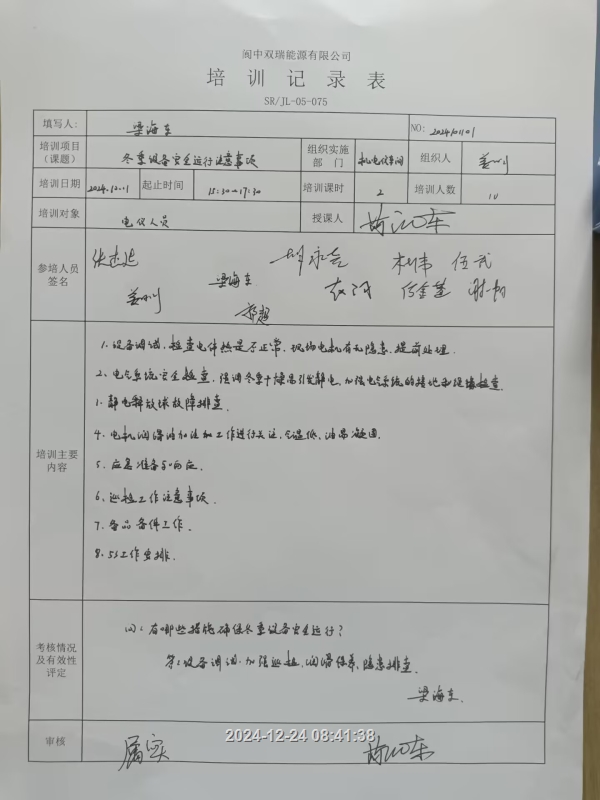 阆中双瑞能源有限公司
培训记录表
SR/JL-05-075
填写人: 梁海东 NO: 2024101101
培训项目(课题) 冬季设备安全运行注意事项 组织实施部门 机电仪车间 组织人
培训日期 2024.12.11 起止时间 15:30-17:30 培训课时 2 培训人数 10
培训对象 电仪人员 授课人
参培人员签名
梁海东
伍武
培训主要内容
1、设备调试,检查电伴热是否正常,现场电机有无隐患,提前处理.
2、电气系统安全检查,强调冬季干燥易引发静电,加强电气系统的接地和绝缘检查
1、静电释放球故障排查.
4、电机润滑油加注加工作进行关注,气温低,油易凝固.
5、应急准备与响应.
6、巡检工作注意事项.
7、备品备件工作.
8、5S工作安排.
考核情况及有效性评定
问:有哪些措施确保冬季设备安全运行?
答:设备调试,加强巡检,润滑保养,隐患排查.
梁海东.
审核 属实
2024-12-24 08:41:38